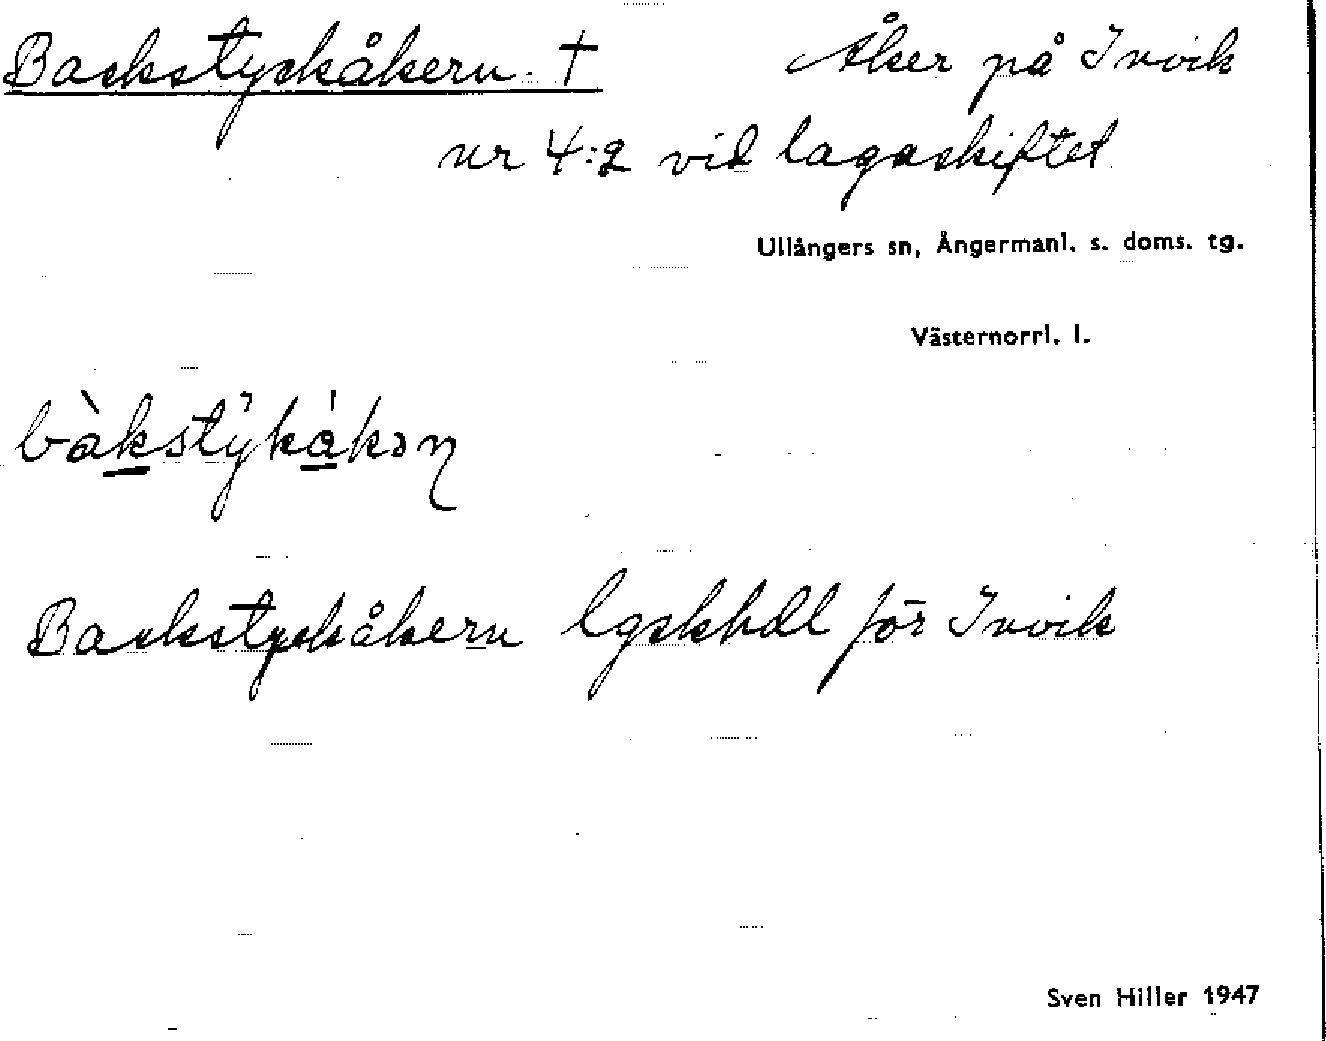 Backstyckåkern. † Åker på Invik
nr 4:2 vid lagaskiftet
Ullångers sn, Ångermanl. s. doms. tg.
Västernorrl. l.
Backstyckåkern lgskhdl för Invik
Sven Hiller 1947